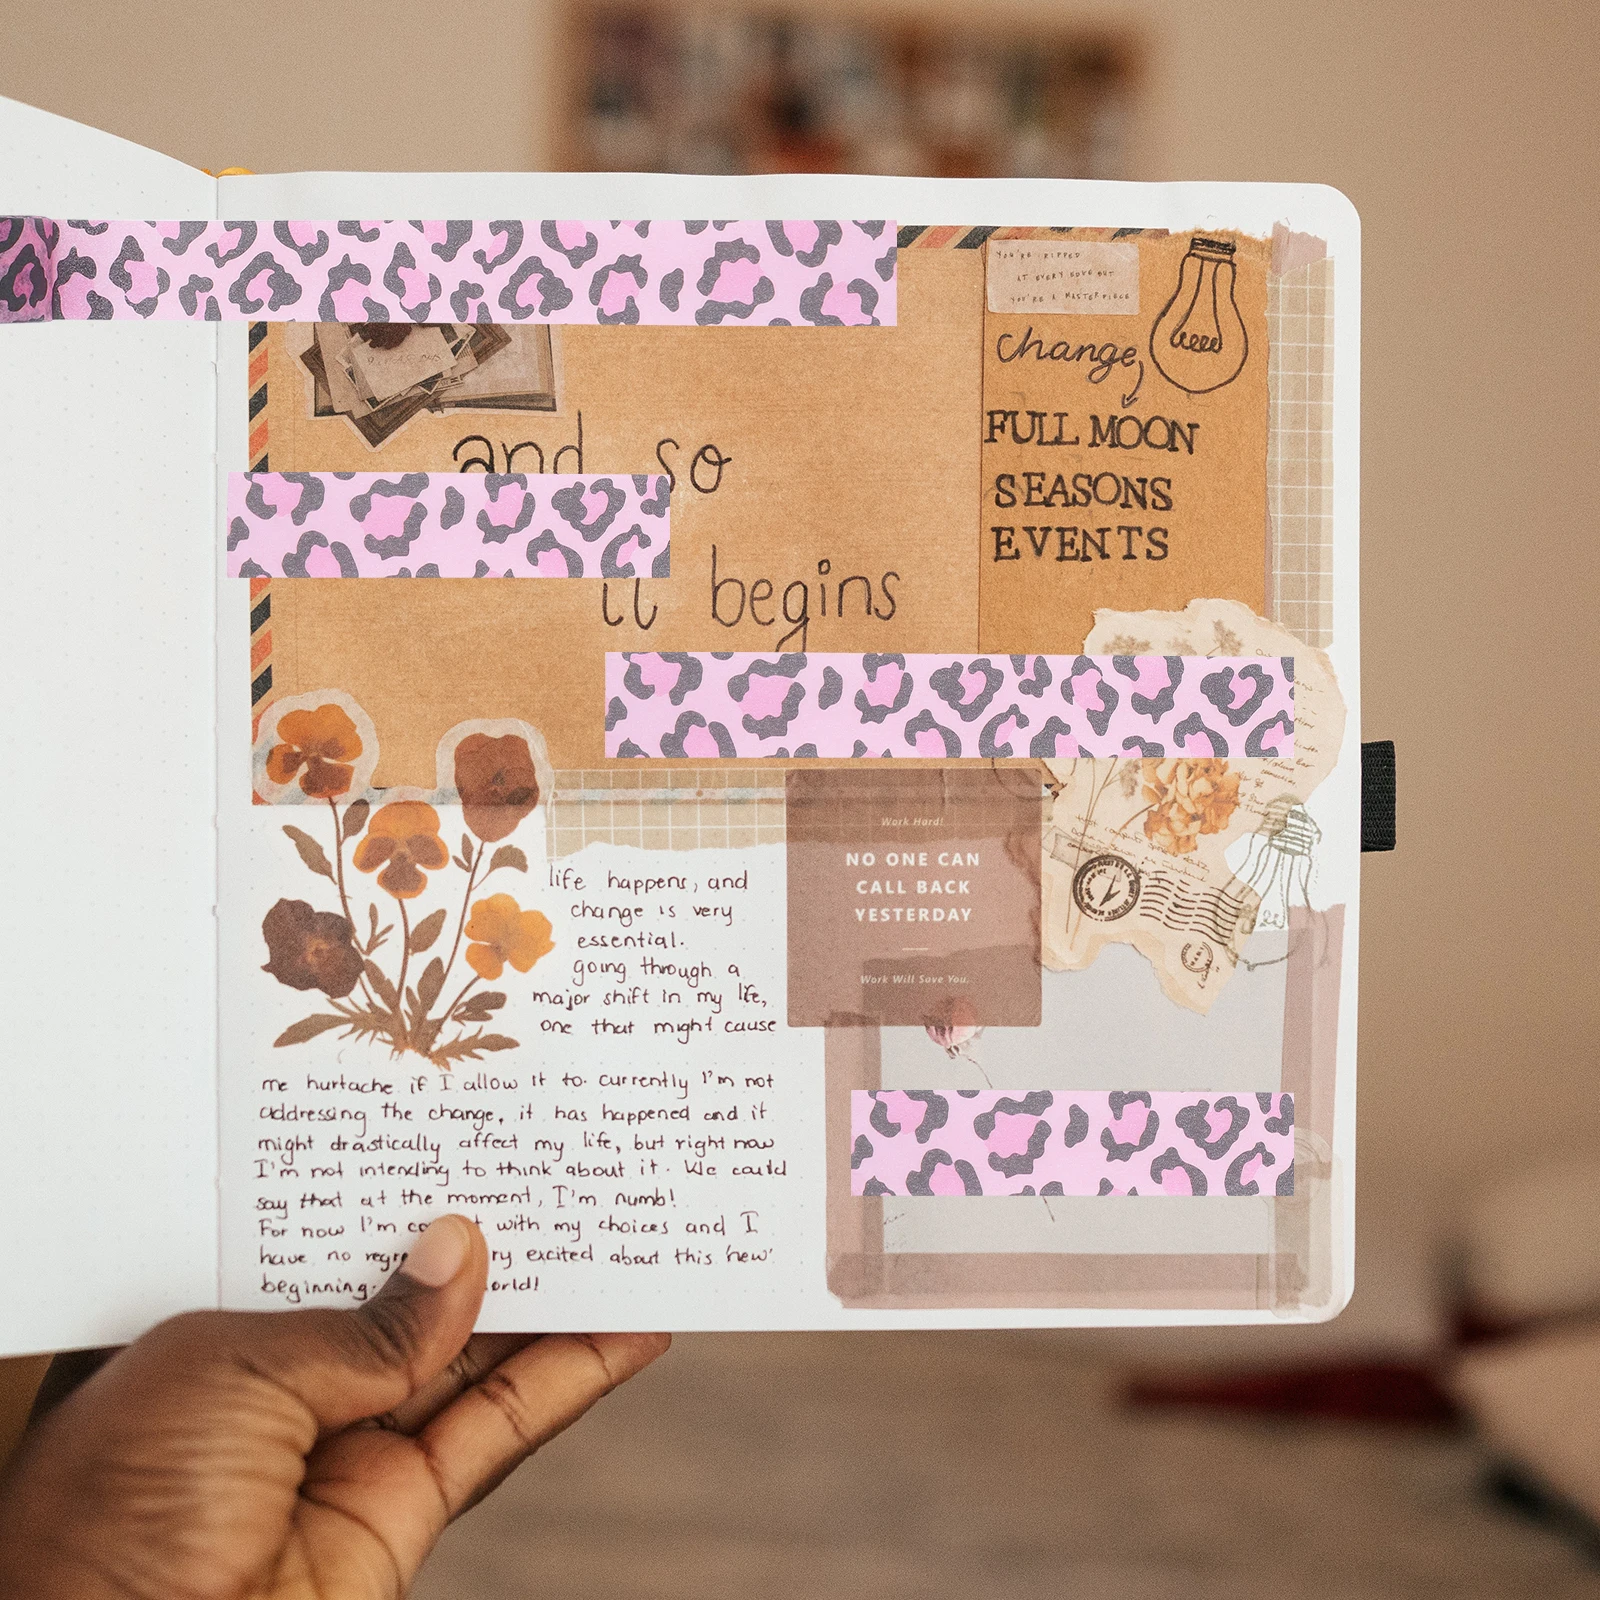 YOU'RE RIPPED
AT EVERY EDGE BUT
YOU'RE A MASTERPIECE
Change
FULL MOON
SEASONS
EVENTS
and so
it begins
Work Hard!
NO ONE CAN
CALL BACK
YESTERDAY
Work Will Save You.
life happens, and
change is very
essential.
going through a
major shift in my life,
one that might cause
me hurtache if I allow it to. currently I'm not
addressing the change, it has happened and it
might drastically affect my life, but right now
I'm not intending to think about it. We could
say that at the moment, I'm numb!
For now I'm with my choices and I
have no excited about this 'new'
beginning.